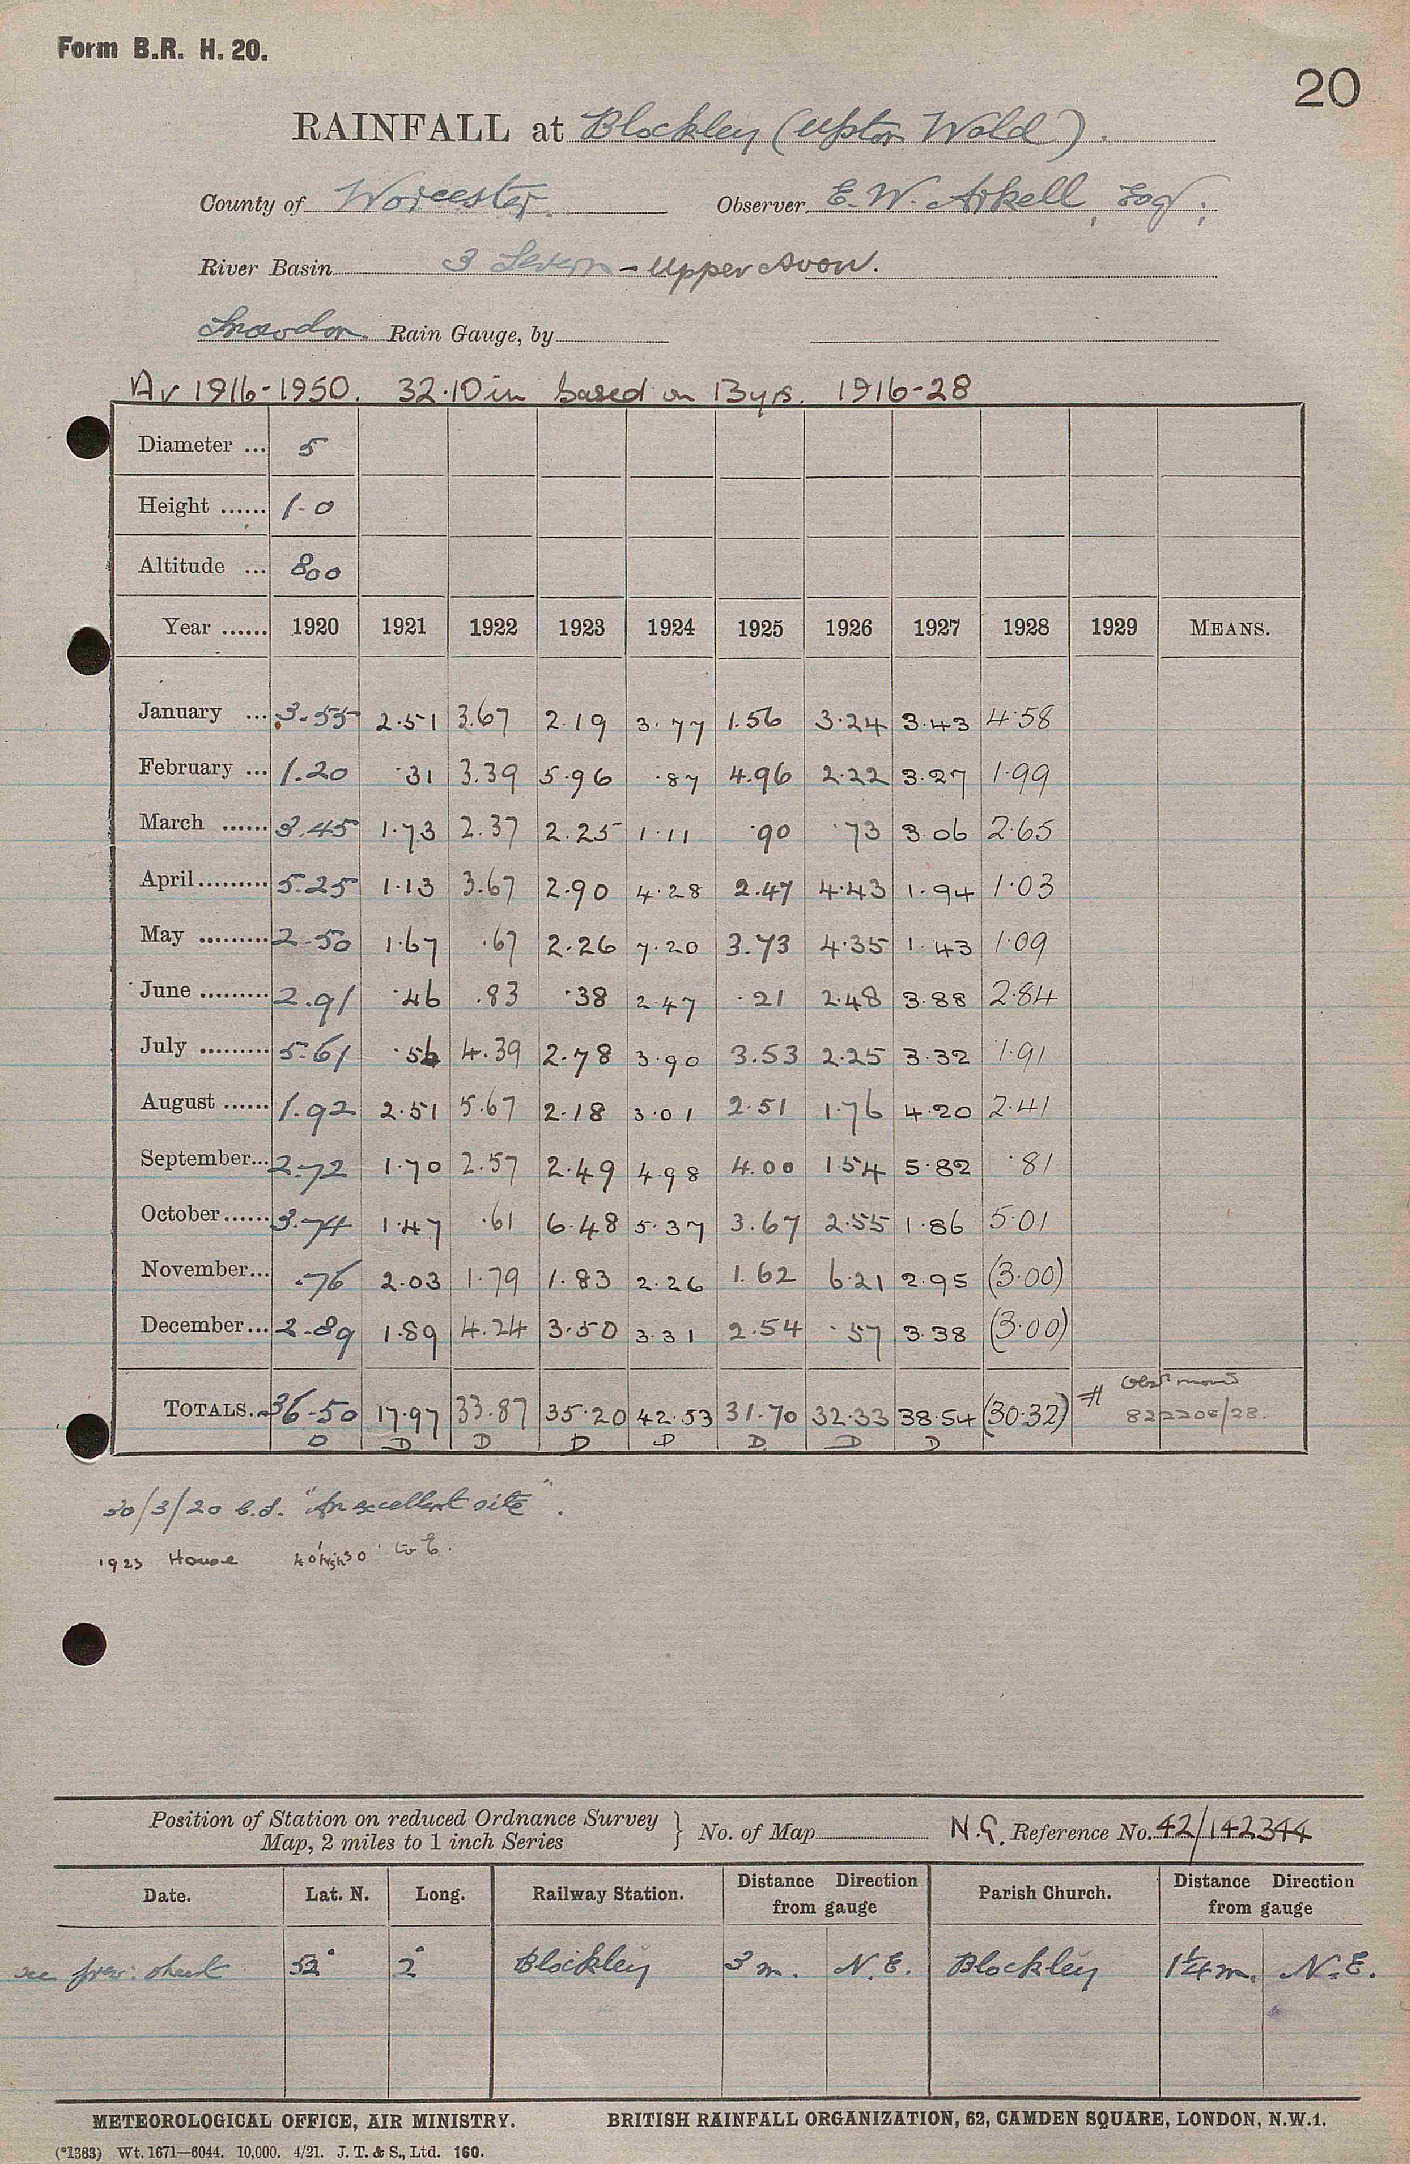 Form B.R. H. 20.
20
RAINFALL at Blockley (Upton Wold).
County of Worcester. Observer, E. W. Arkell, Esq;
River Basin 3 Severn - Upper Avon.
Snowdon Rain Gauge, by
Av 1916-1950. 32.10 in based on 13 yrs. 1916-28
Diameter ... 5
Height ...... 1-0
Altitude ... 800
Year ...... 1920 1921 1922 1923 1924 1925 1926 1927 1928 1929 MEANS.
January ... 3.55 2.51 3.67 2.19 3.77 1.56 3.24 3.43 4.58
February ... 1.20 .31 3.39 5.96 .87 4.96 2.22 3.27 1.99
March ...... 3.45 1.73 2.37 2.25 1.11 .90 .73 3.06 2.65
April ......... 5.25 1.13 3.67 2.90 4.28 2.47 4.43 1.94 1.03
May ......... 2.50 1.67 .67 2.26 7.20 3.73 4.35 1.43 1.09
June ......... 2.91 .46 .83 .38 2.47 .21 2.48 3.88 2.84
July ......... 5.61 .56 4.39 2.78 3.90 3.53 2.25 3.32 1.91
August ...... 1.92 2.51 5.67 2.18 3.01 2.51 1.76 4.20 2.41
September... 2.72 1.70 2.57 2.49 4.98 4.00 1.54 5.82 .81
October...... 3.74 1.47 .61 6.48 5.37 3.67 2.55 1.86 5.01
November... .76 2.03 1.79 1.83 2.26 1.62 6.21 2.95 (3.00)
December... 2.89 1.89 4.24 3.50 3.31 2.54 .57 3.38 (3.00)
TOTALS... 36.50 17.97 33.87 35.20 42.53 31.70 32.33 38.54 (30.32) # Obsr moved
822206/28.
D D D D D D D D
30/3/20 "An excellent site".
1923 House 40' high 30'
Position of Station on reduced Ordnance Survey
Map, 2 miles to 1 inch Series } No. of Map N.G. Reference No. 42/142344
Date. Lat. N. Long. Railway Station. Distance Direction from gauge Parish Church. Distance Direction from gauge
see prev: sheet 52° 2° Blockley 3 m. N.E. Blockley 1¼ m. N.E.
METEOROLOGICAL OFFICE, AIR MINISTRY. BRITISH RAINFALL ORGANIZATION, 62, CAMDEN SQUARE, LONDON, N.W.1.
(*1383) Wt. 1671—6044. 10,000. 4/21. J. T. & S., Ltd. 160.